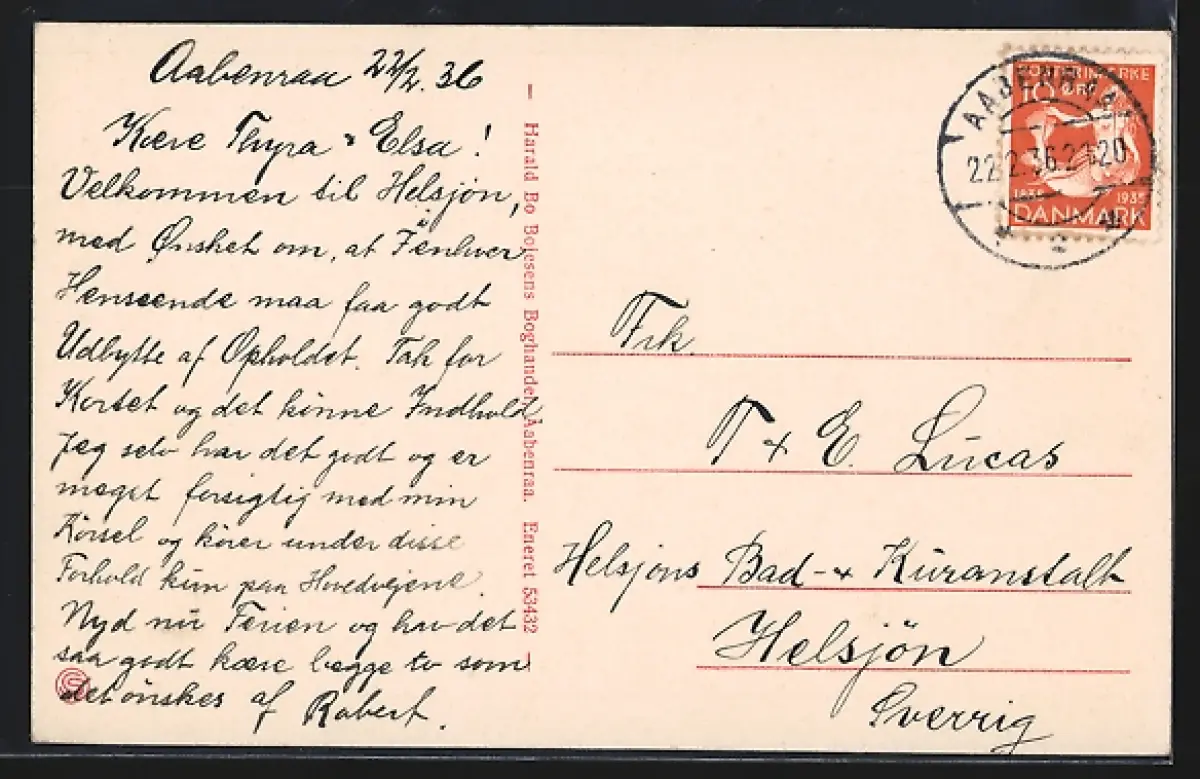 Aabenraa 22/2. 36
Kære Thyra & Elsa!
Velkommen til Helsjön,
med Ønsket om, at I enhver
Henseende maa faa godt
Udbytte af Opholdet. Tak for
Kortet og det kønne Indhold
Jeg selv har det godt og er
meget forsigtig med min
Körsel og körer under disse
Forhold kun paa Hovedvejene.
Nyd nu Ferien og hav det
saa godt kære begge to som
det önskes af Robert.
Harald Bo Bojesens Boghandel, Aabenraa. Eneret 53432
AABENRAA
22.2.36.21.20
POSTFRIMÆRKE
10 ØRE
1835 1935
DANMARK
Frk.
T & E. Lucas
Helsjöns Bad- & Kuranstalt
Helsjön
Sverrig